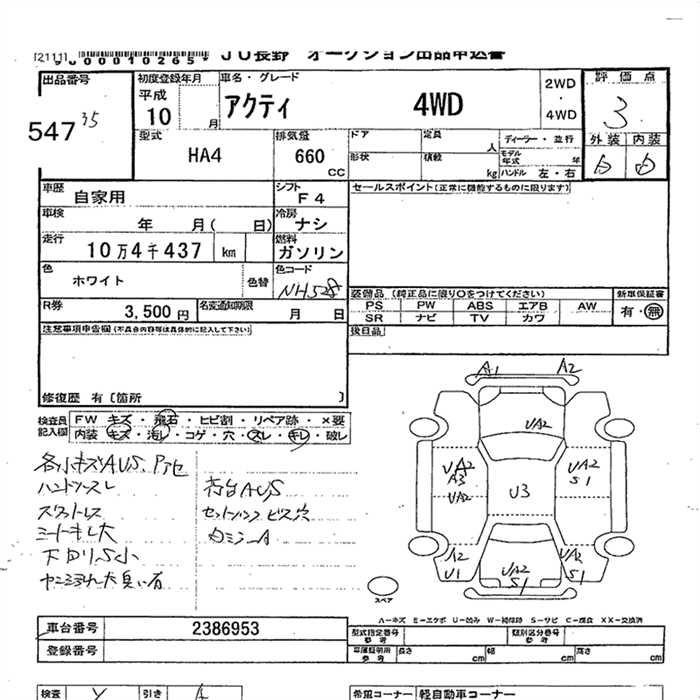 [2111] *00010265* JU長野 オークション出品申込書
出品番号 547 35
初度登録年月 平成 10 月
車名・グレード アクティ 4WD
2WD・4WD
評価点 3
型式 HA4
排気量 660 cc
ドア 形状
定員 人 積載 kg
ディーラー・並行 モデル年式 年 ハンドル 左・右
外装 内装
車歴 自家用
シフト F4
セールスポイント(正常に機能するものに限ります)
車検 年 月( 日)
冷房 ナシ
走行 10万4千437 km
燃料 ガソリン
色 ホワイト 色替
色コード NH528
装備品 (純正品に限り○をつけてください) 新車保証書
PS PW ABS エアB AW 有・無
SR ナビ TV カワ
R券 3,500円 名変通知期限 月 日
後日品
注意事項申告欄(不具合内容等は具体的に記入して下さい)
修復歴 有 [箇所 ]
検査員記入欄 FW キズ・飛石・ヒビ割・リペア跡・×要
内装・キズ・汚レ・コゲ・穴・スレ・キレ・破レ
各小キズAUS、アセ
ハンドルスレ
シートキレ大
下回りS小
荷台AUS
A1 A2
UA2
UA2 A3 UA2
UA2 S1
U3
A2 U1
UA2 S1
UA2 S1
スペア
A－キズ E－エクボ U－凹み W－補修跡 S－サビ C－腐食 XX－交換済
車台番号 2386953
型式指定番号 参考 類別区分番号 参考
登録番号
車庫証明用 参考 長さ cm 幅 cm 高さ cm
検査 引き 希望コーナー 軽自動車コーナー